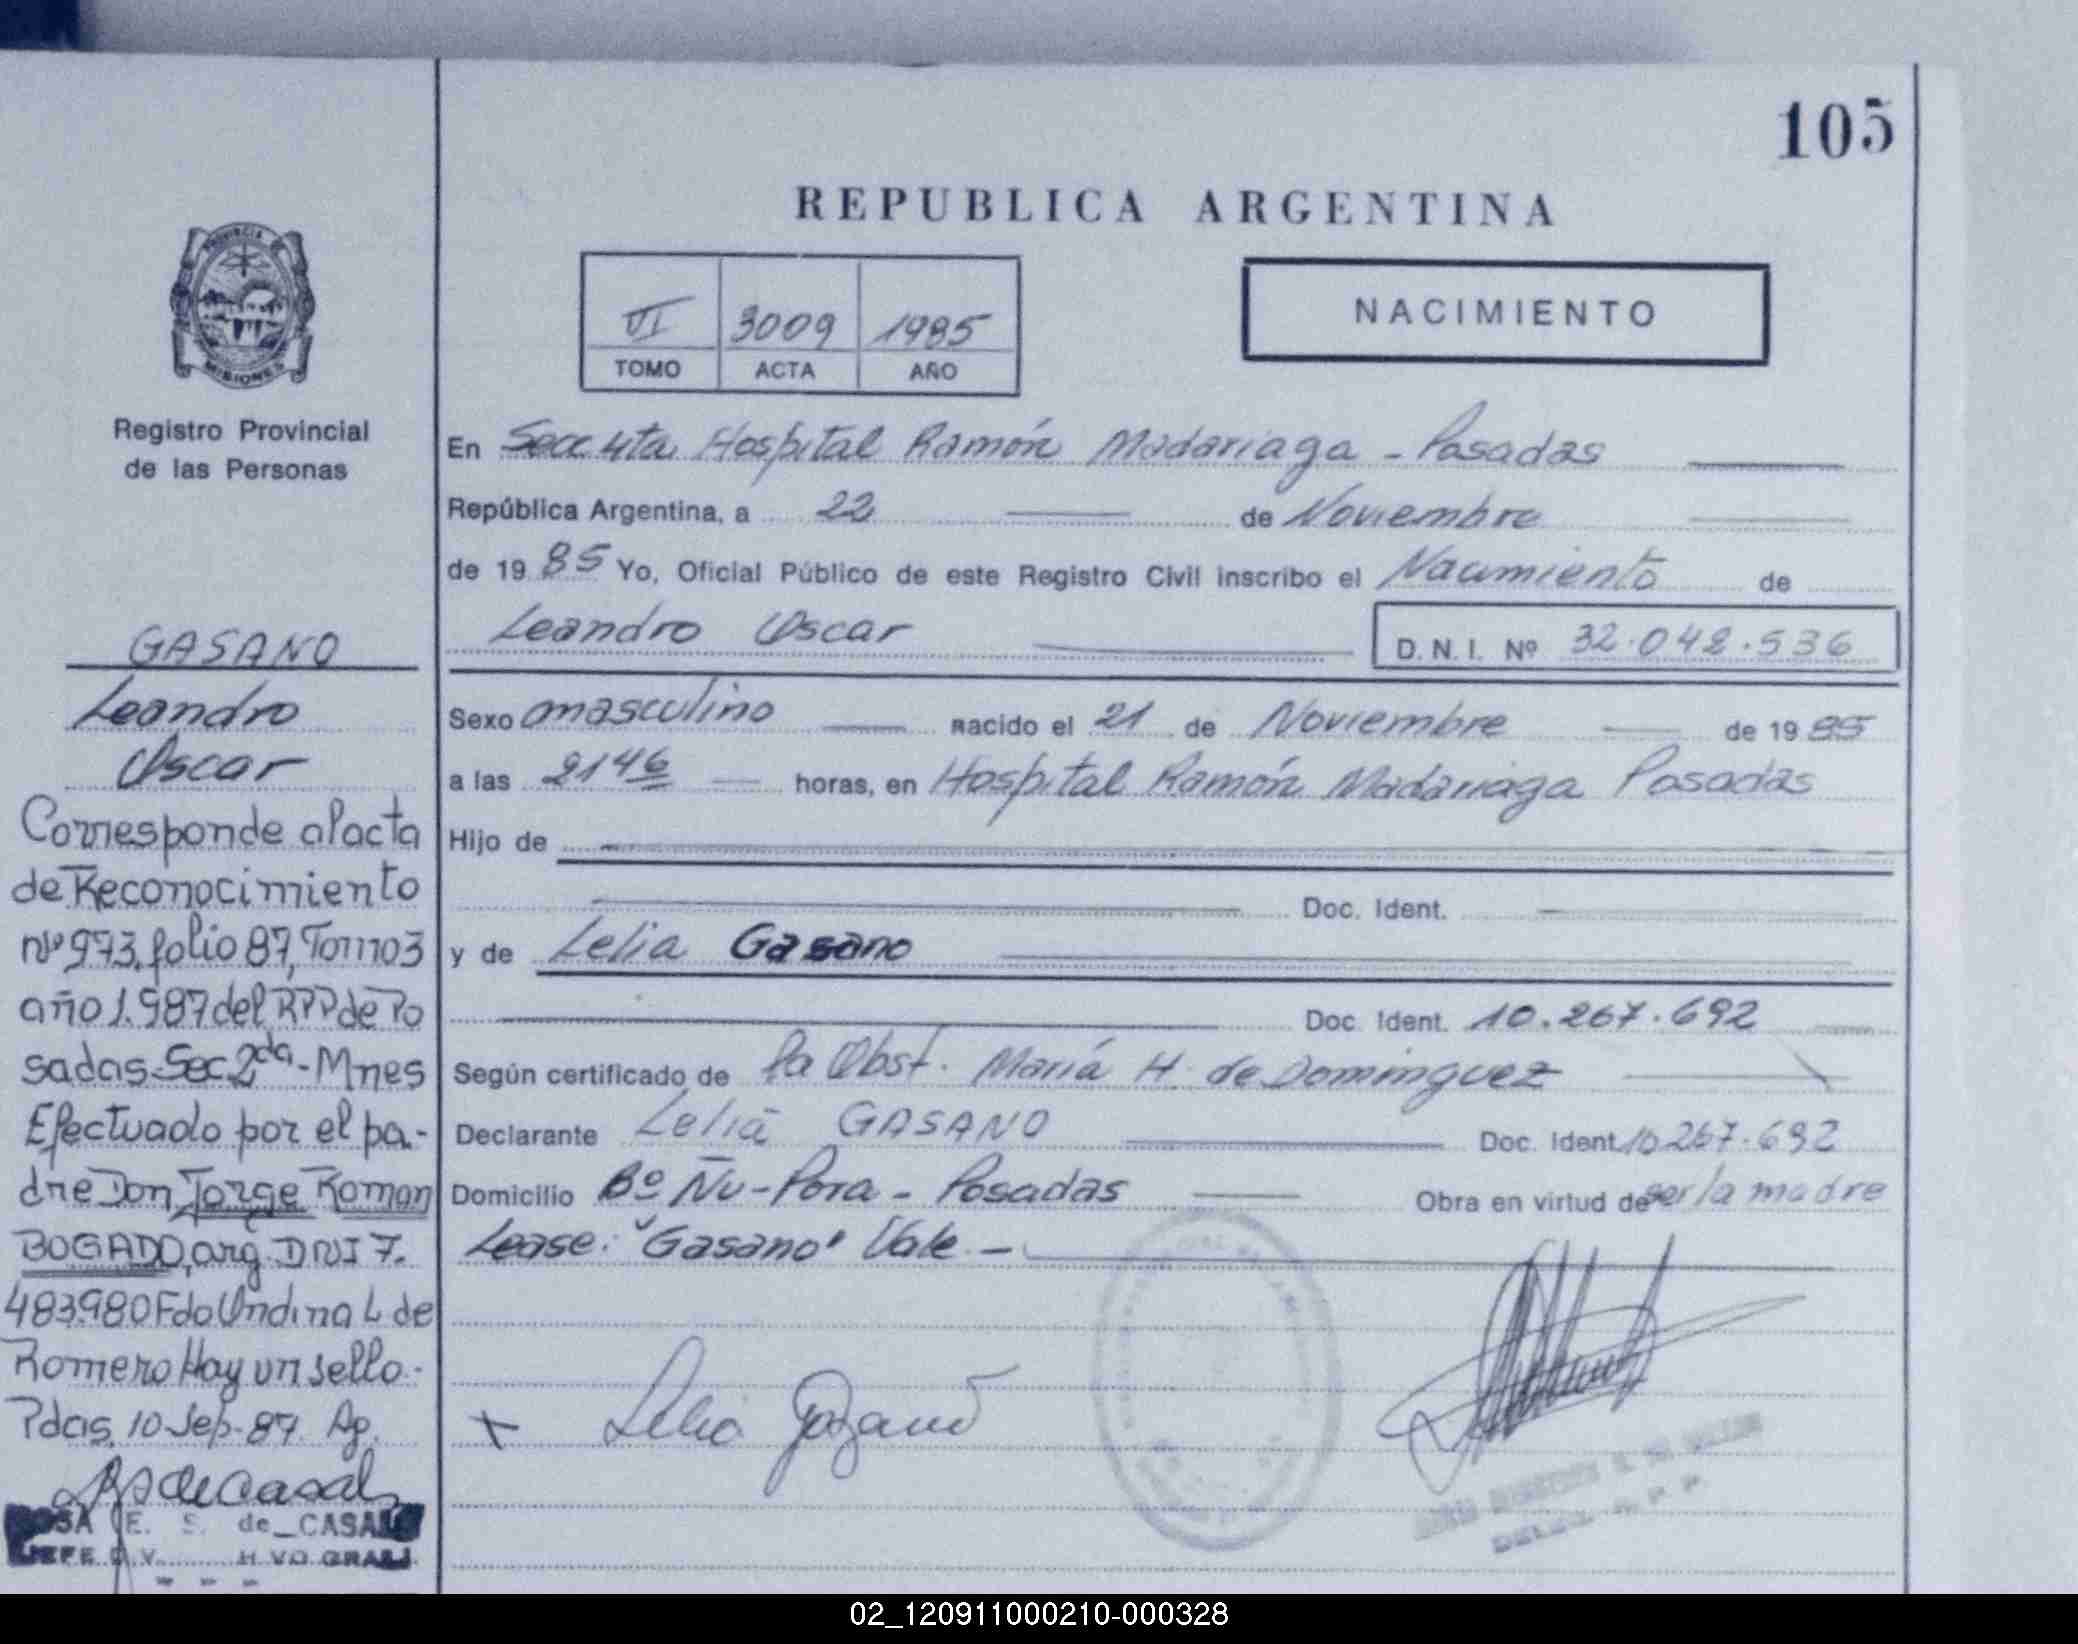 105
REPUBLICA ARGENTINA
VI 3009 1985
TOMO ACTA AÑO
NACIMIENTO
PROVINCIA DE
MISIONES
Registro Provincial
de las Personas
GASANO
Leandro
Oscar
Corresponde al acta
de Reconocimiento
nº 973, folio 87, Tomo 3
año 1.987 del RPP de Po
sadas Sec. 2da - Mnes
Efectuado por el pa-
dre Don Jorge Roman
BOGADO, arg. DNI 7.
483.980 Fdo Undina L de
Romero Hay un sello.-
Pdas, 10 Sep-87. Ag.
RS de Casal
ROSA E. S. de CASAL
JEFE DIV.
En Secc 4ta Hospital Ramón Madariaga - Posadas
República Argentina, a 22 de Noviembre
de 1985 Yo, Oficial Público de este Registro Civil inscribo el Nacimiento de
Leandro Oscar D.N.I. Nº 32.042.536
Sexo masculino nacido el 21 de Noviembre de 1985
a las 2146 horas, en Hospital Ramón Madariaga Posadas
Hijo de
Doc. Ident.
y de Lelia Gasano
Doc. Ident. 10.267.692
Según certificado de la Obst. María H. de Dominguez
Declarante Lelia GASANO Doc. Ident. 10.267.692
Domicilio Bº Ñu-Pora - Posadas Obra en virtud de ser la madre
Lease: "Gasano" Vale -
x Lelia Gazano
02_120911000210-000328